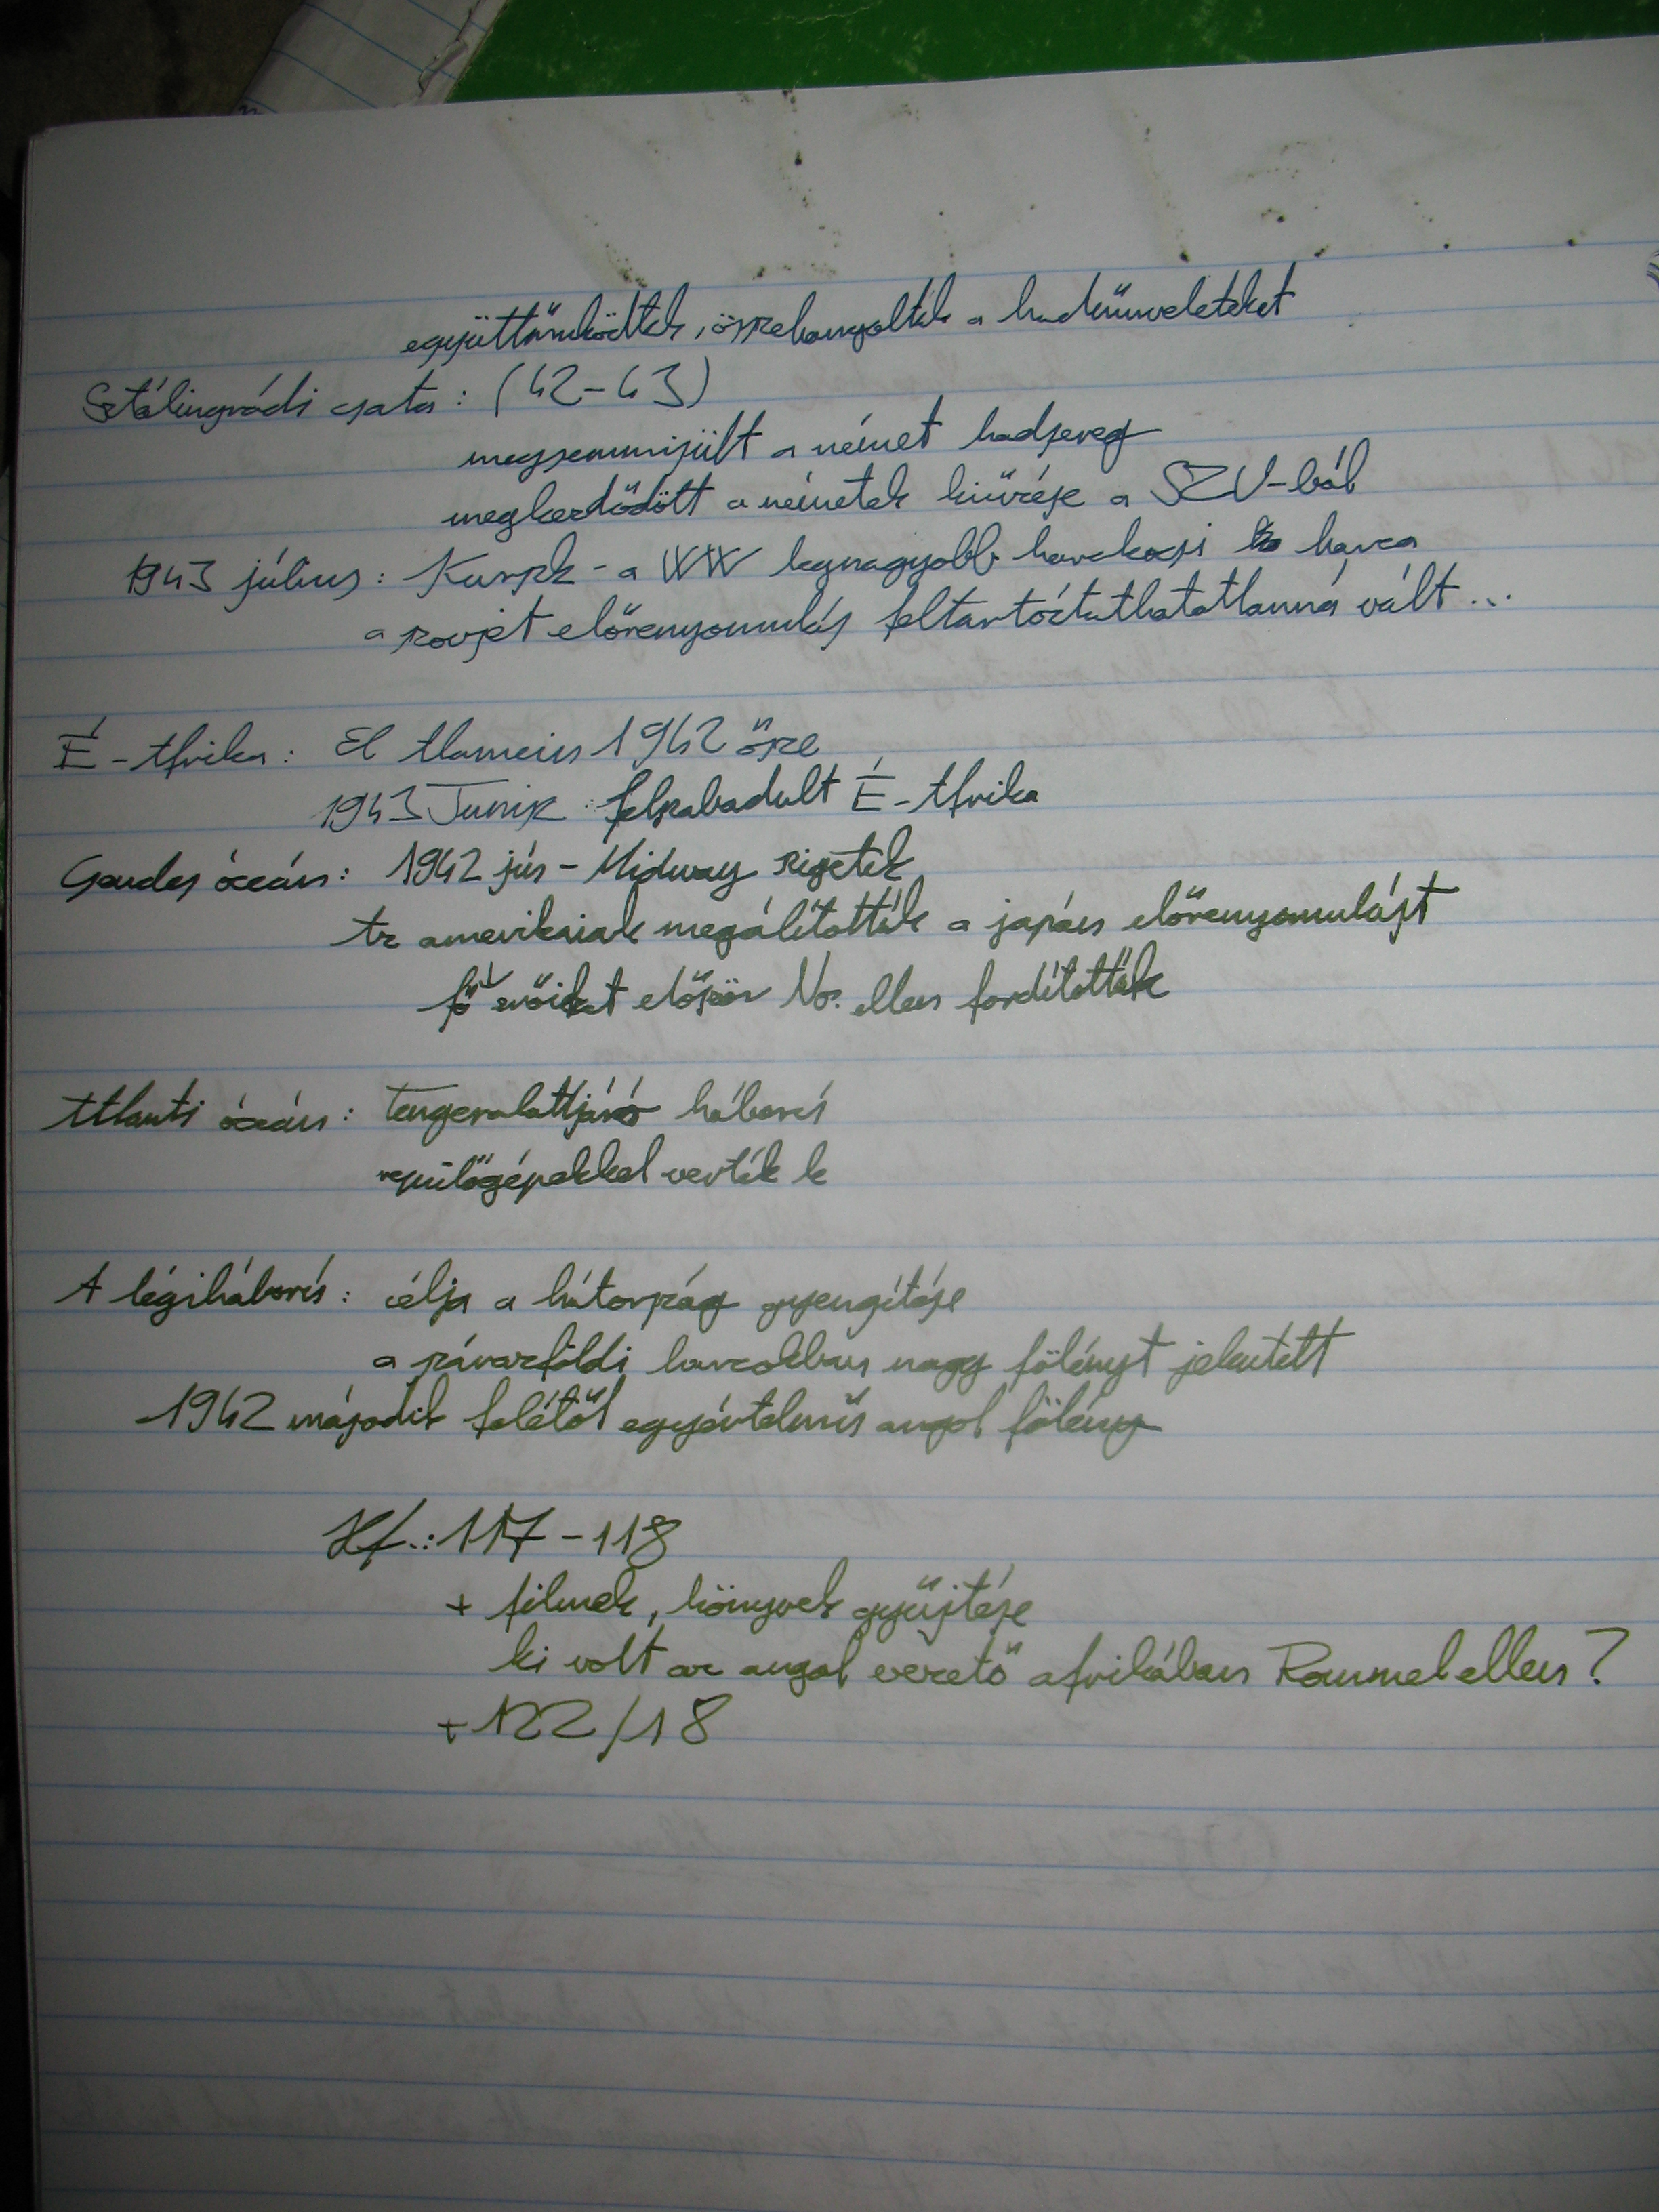 együttműködtek, összehangolták a hadműveleteket
Sztálingrádi csata: (42-43)
megsemmisült a német hadsereg
megkezdődött a németek kiűzése a SZU-ból
1943 július: Kurszk - a WW legnagyobb harckocsi harca
a szovjet előrenyomulás feltartóztathatatlanná vált...
É-Afrika: El Alamein 1942 ősze
1943 Tunisz: felszabadult É-Afrika
Csendes óceán: 1942 jún - Midway szigetek
Az amerikaiak megálították a japán előrenyomulást
fő erőiket először No. ellen fordították
Atlanti óceán: Tengeralattjáró háború
repülőgépekkel verték le
A légiháború: célja a hátország gyengítése
a szárazföldi harcokban nagy fölényt jelentett
1942 második felétől egyértelmű angol fölény
Hf.: 117-118
+ filmek, könyvek gyűjtése
ki volt az angol vezető afrikában Rommel ellen?
+122/18